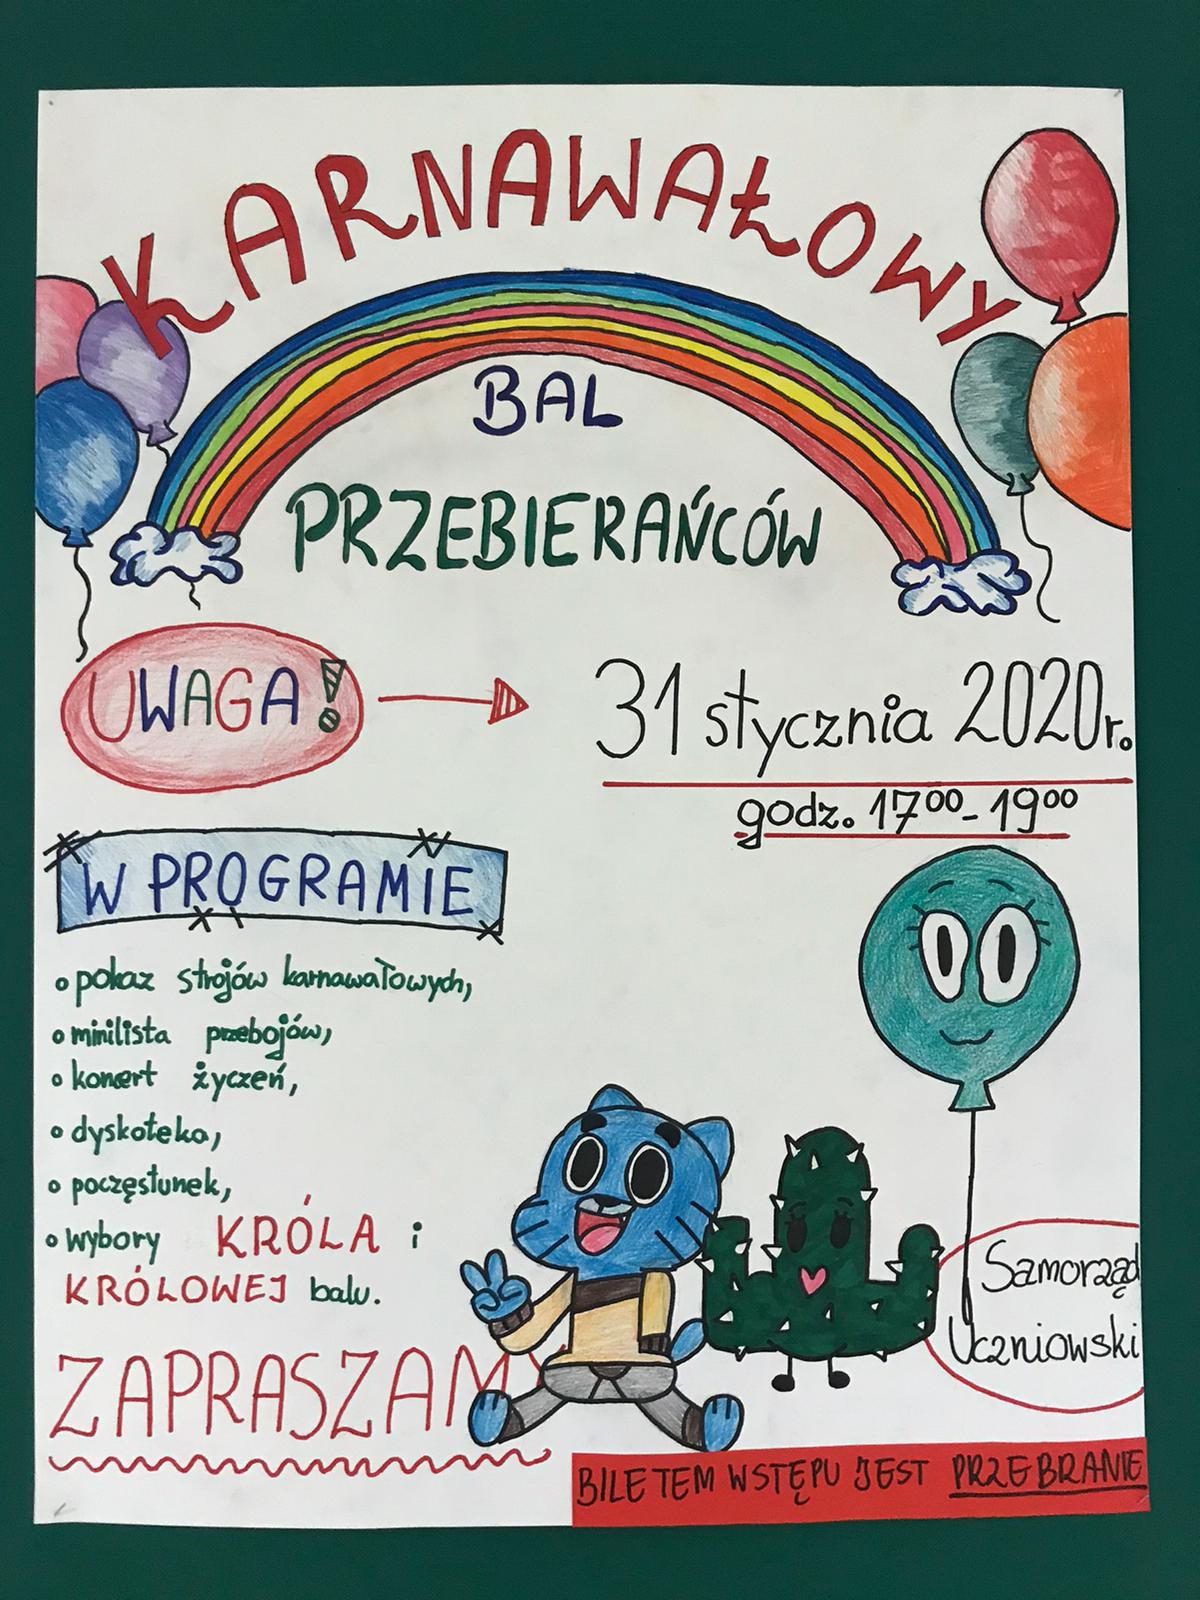 KARNAWAŁOWY
BAL
PRZEBIERAŃCÓW
UWAGA!
31 stycznia 2020r.
godz. 17⁰⁰-19⁰⁰
W PROGRAMIE
• pokaz strojów karnawałowych,
• minilista przebojów,
• koncert życzeń,
• dyskoteka,
• poczęstunek,
• wybory KRÓLA i
KRÓLOWEJ balu.
Samorząd
Uczniowski
ZAPRASZAM
BILETEM WSTĘPU JEST PRZEBRANIE